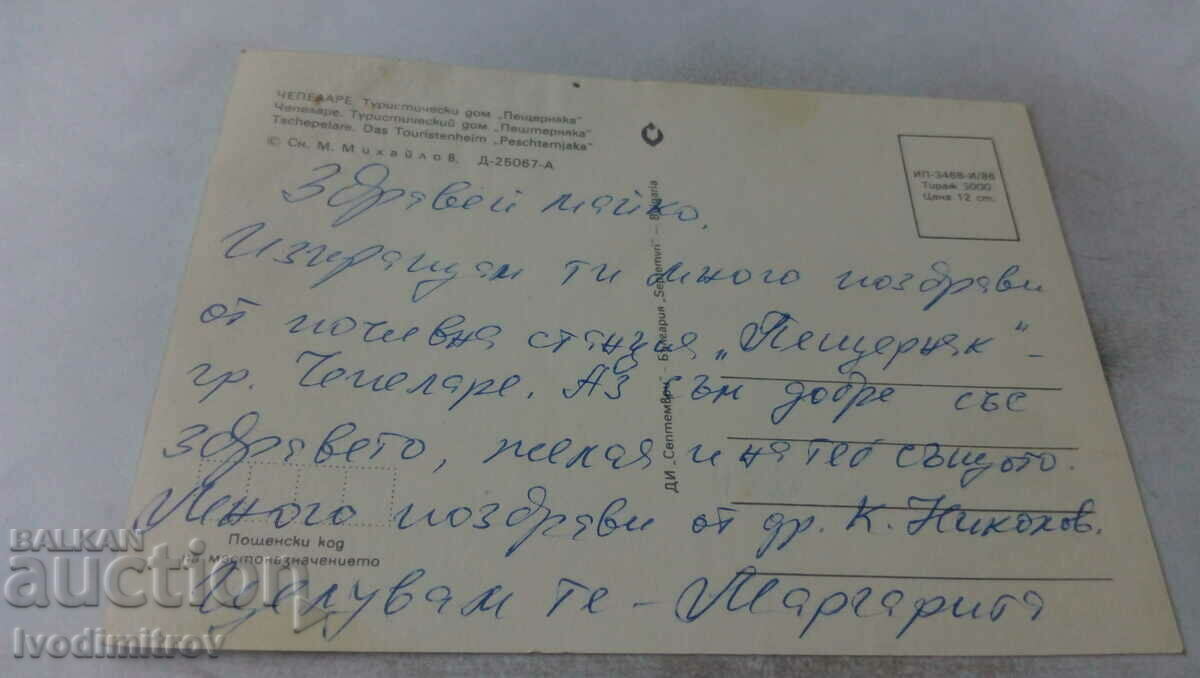 ЧЕПЕЛАРЕ. Туристически дом „Пещерняка"
Чепеларе. Туристический дом „Пештерняка"
Tschepelare. Das Touristenheim „Peschternjaka"
© Сн. М. Михайлов. Д-25067-А
ИП-3468-И/86
Тираж 5000
Цена 12 ст.
Здравей майко,
Изпращам ти много поздрави
от почивна станция „Пещерняк" –
гр. Чепеларе. Аз съм добре със
здравето, желая и на теб същото.
Много поздрави от др. К. Николов.
Целувам те – Маргарита
ДИ „Септември" – България „Septemvri" – Bulgaria
Пощенски код
на местоназначението
BALKAN
auction
Ivodimitrov